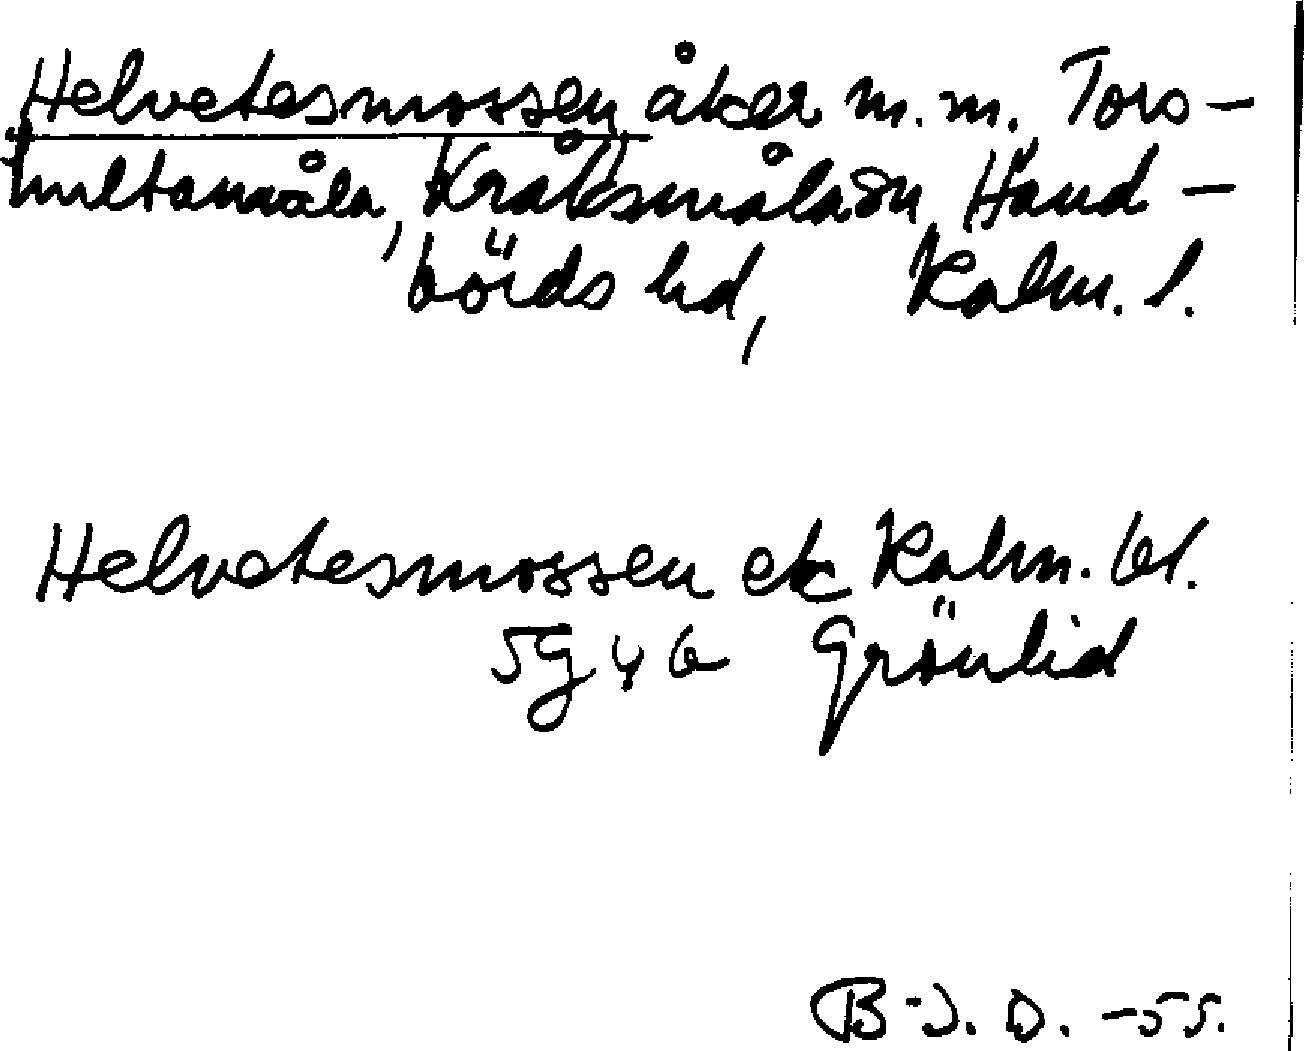 Helvetesmossen, åker m.m., Tors-
hultamåla, Kråksmåla sn, Hand-
börds hd, Kalm. l.
Helvetesmossen ek Kalm. bl.
5G 4 b Grönlid
B-J. D. -55.